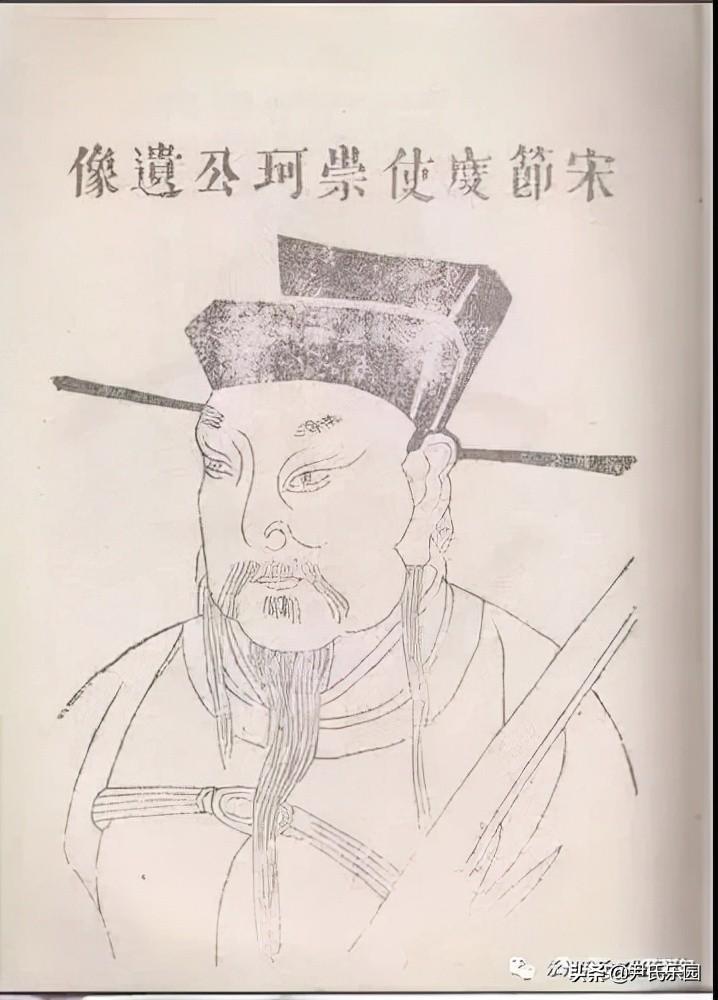 宋節度使崇珂公遺像
头条@尹氏乐园